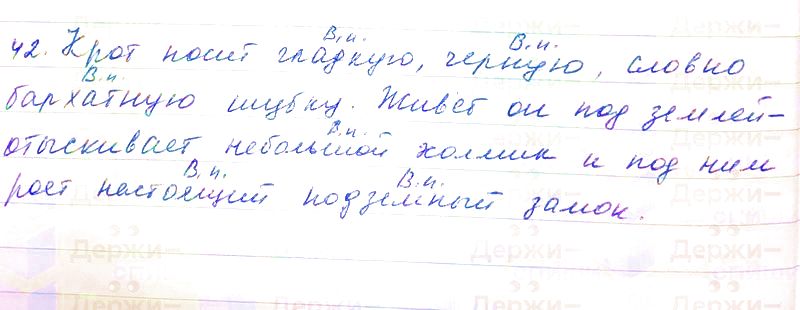 В.п. В.п.
42. Крот носит гладкую, черную, словно
В.п.
бархатную шубку. Живёт он под землей-
В.п.
отыскивает небольшой холмик и под ним
В.п. В.п.
роет настоящий подземный замок.
Держи- Держи- Держи-
Держи- Держи- Держи-